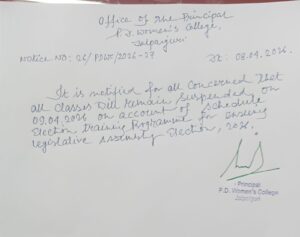 Office of the Principal
P.D. Women's College,
Jalpaiguri
Notice No: 26/PDWC/2026-27
Dt: 08.04.2026.
It is notified for all concerned that
all classes will remain suspended on
09.04.2026 on account of schedule
Election training Programme for ensuing
legislative Assembly Election, 2026.
Principal
P.D. Women's College
Jalpaiguri